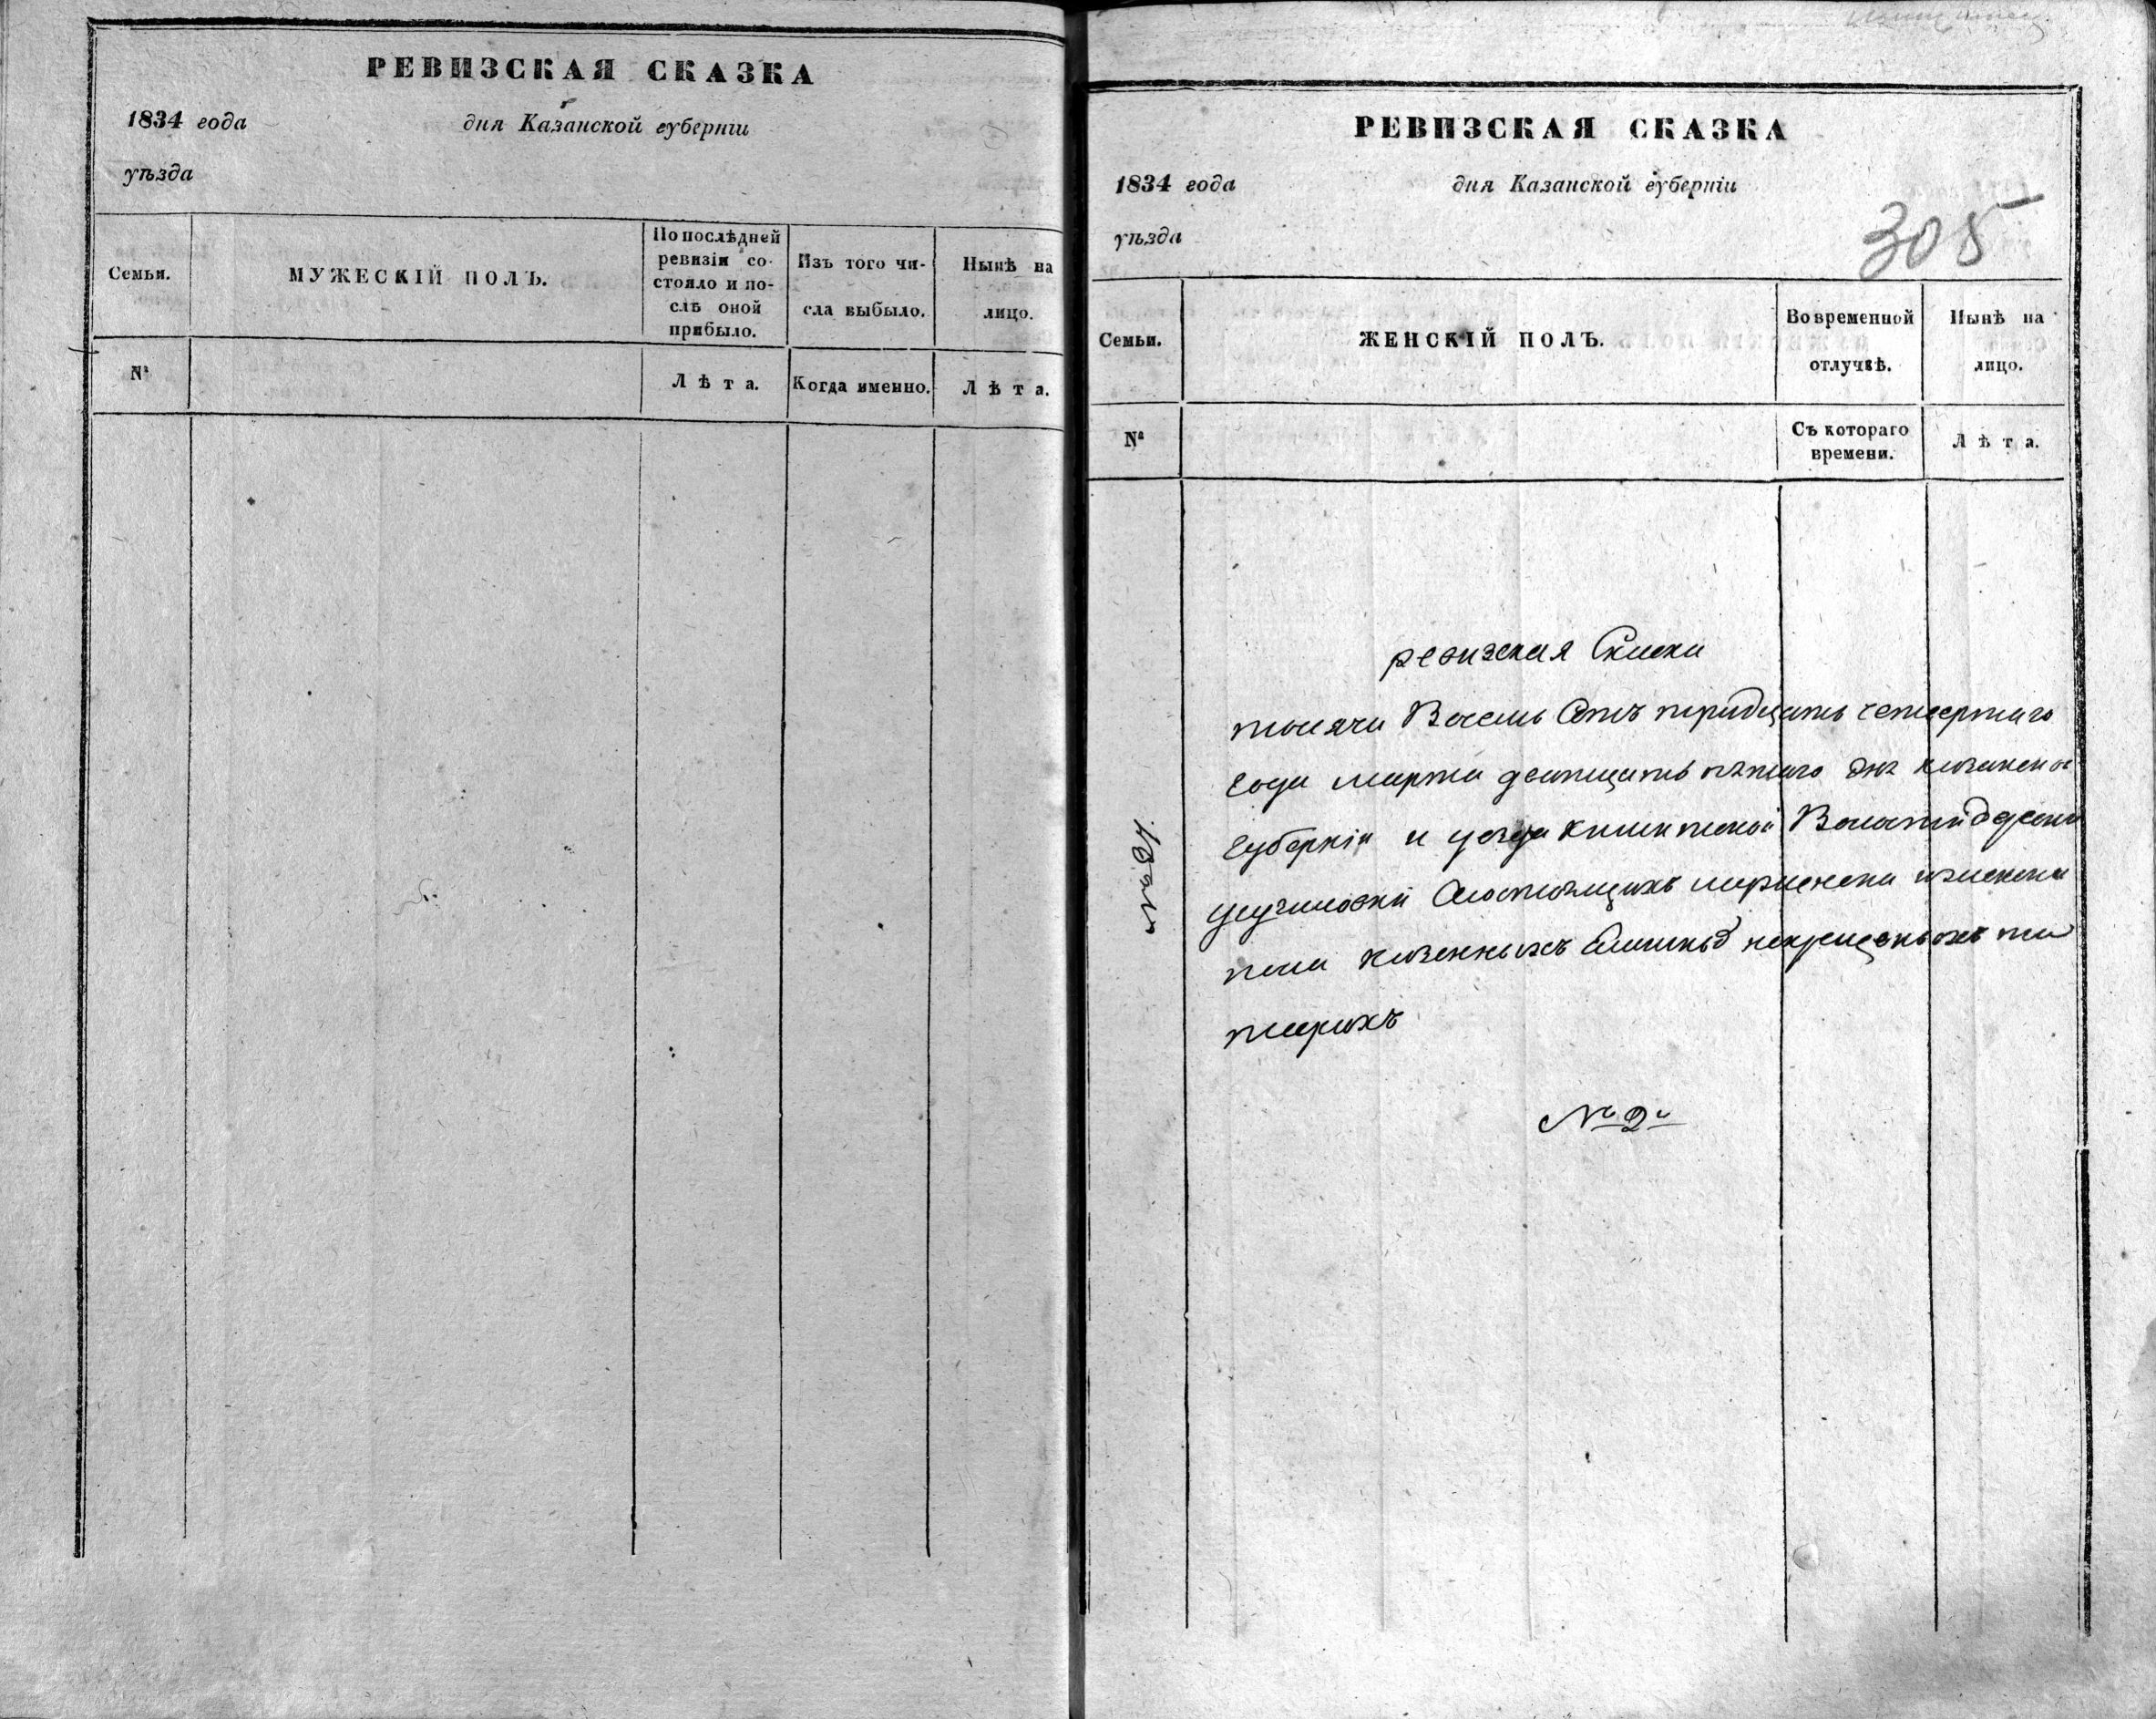 РЕВИЗСКАЯ СКАЗКА
1834 года дня Казанской губерніи
уѣзда
Семьи.
МУЖЕСКІЙ ПОЛЪ.
По послѣдней
ревизіи со-
стояло и по-
слѣ оной
прибыло.
Изъ того чи-
сла выбыло.
Нынѣ на
лицо.
№
Лѣта.
Когда именно.
Лѣта.
РЕВИЗСКАЯ СКАЗКА
1834 года дня Казанской губерніи
уѣзда
305
Семьи.
ЖЕНСКІЙ ПОЛЪ.
Во временной
отлучкѣ.
Нынѣ на
лицо.
№
Съ котораго
времени.
Лѣта.
ревизская Скаска
тысяча Восемь Сотъ тридцать четвертаго
года марта дватцать пятаго дня казанской
Губерніи и уезда
состоящихъ мужеска и женска
пола казенныхъ некрещеныхъ та
тарахъ
№ 2й